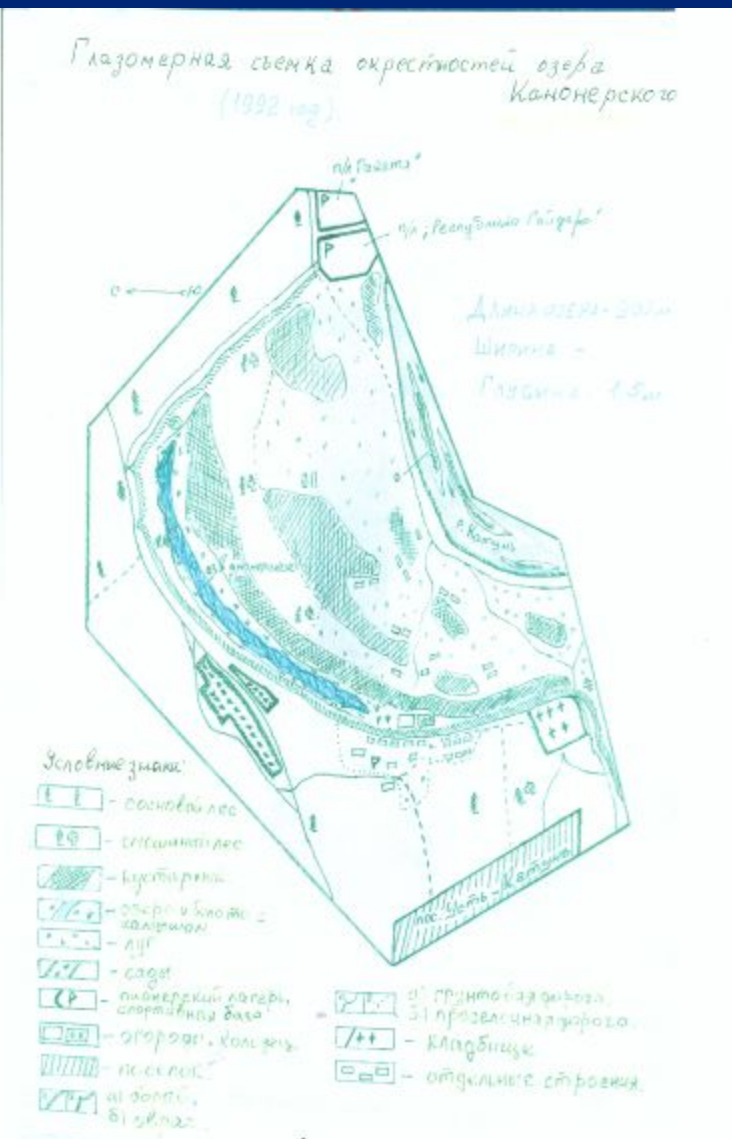 Глазомерная съемка окрестностей озера
Канонерского
(1992 год).
п/л
п/л „Республика Гайдара"
С Ю
Р
Р
Длина озера-
Ширина -
Глубина 1.5м
р. Катунь
оз. Канонерское
Р
пос. Усть-Катунь
Условные знаки
- сосновый лес
- смешанный лес
- кустарник
- озеро и болото с
камышом
- луг
- сады
Р - пионерский лагерь,
спортивная база
- огороды, колодец
- поселок
а)
б)
а) грунтовая дорога
б) проселочная дорога
- кладбище
- отдельные строения.